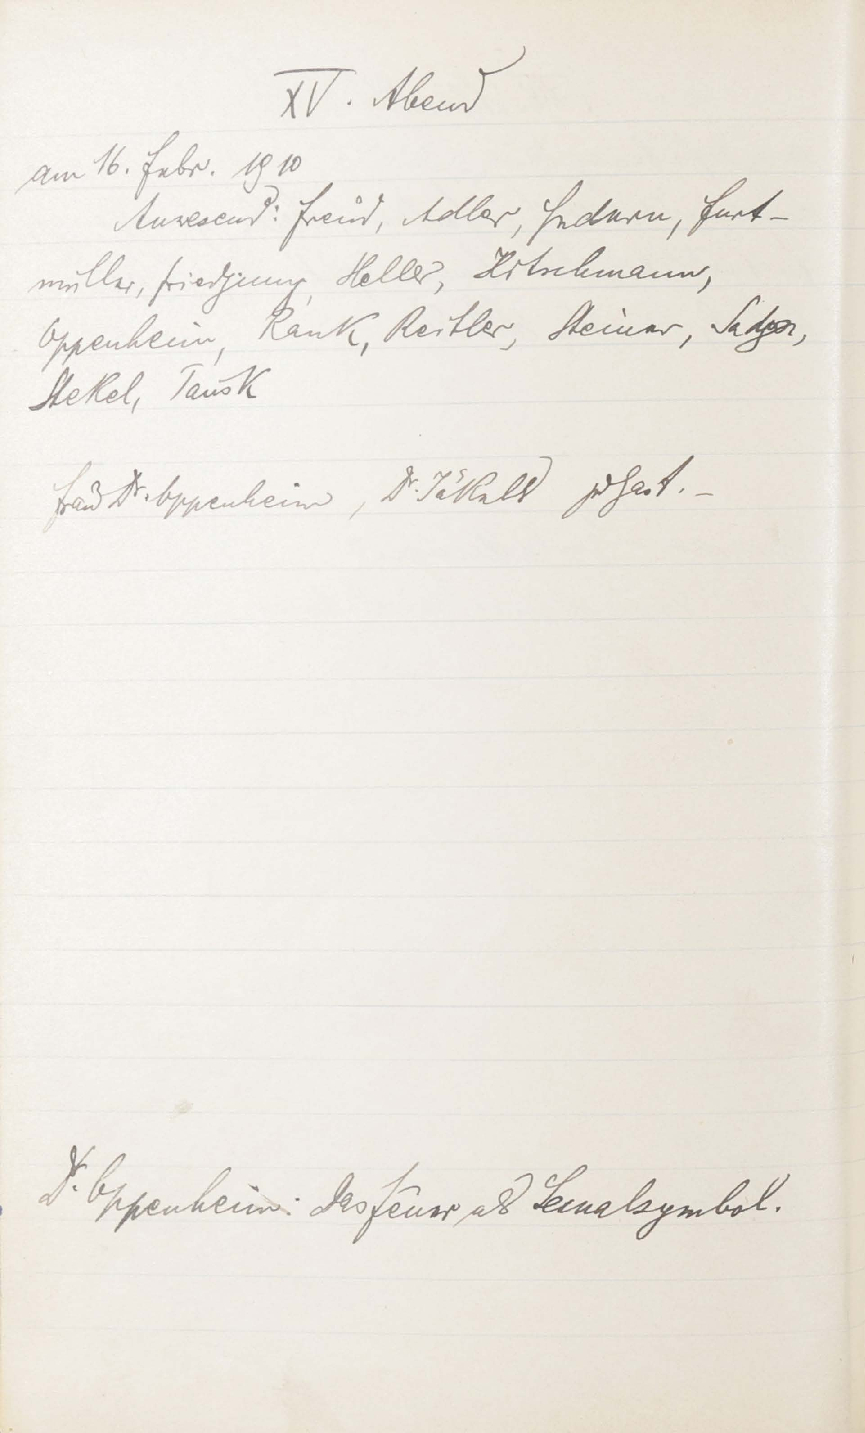 XV. Abend
am 16. Febr. 1910
Anwesend: Freud, Adler, Federn, Furt-
müller, Friedjung, Heller, Hitschmann,
Oppenheim, Rank, Reitler, Steiner, Sadger,
Stekel, Tausk
Frau Dr. Oppenheim, Dr. Jekels zu Gast. –
Dr. Oppenheim: Das Feuer als Sexualsymbol.